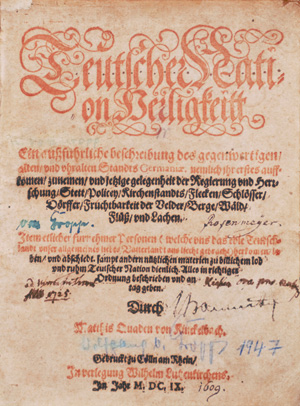 Teutscher Nati-
on Herligkeitt
Ein außführliche beschreibung des gegenwertigen/
alten/ und uhralten Standts Germaniæ. nemlich ihr erstes auff-
kommen/ zunemen/ und jetzige gelegenheit der Regierung und Herr-
schung/ Stett/ Policey/ Kirchenstandts/ Flecken/ Schlösser/
Dörffer/ Fruchtbarkeit der Velder/ Berge/ Wäld/
Flüß/ und Lachen.
von Gropp
Rosenmeyer.
Item etlicher fürnehmer Personen welche uns das edle Teutsch-
landt unser allgemeines liebes Vatterlandt
ben/ und abschiedt. sampt andern nützlichen materien zu billichem lob
und ruhm Teutscher Nation dienlich. Alles in richtiger
Ordnung beschrieben und an
tag geben.
1725
Durch
Matthis Quaden von Kinckelbach.
1947
Gedruckt zu Cölln am Rhein/
In verlegung Wilhelm Lützenkirchens,
Im Jahr M. DC. IX.
1609.